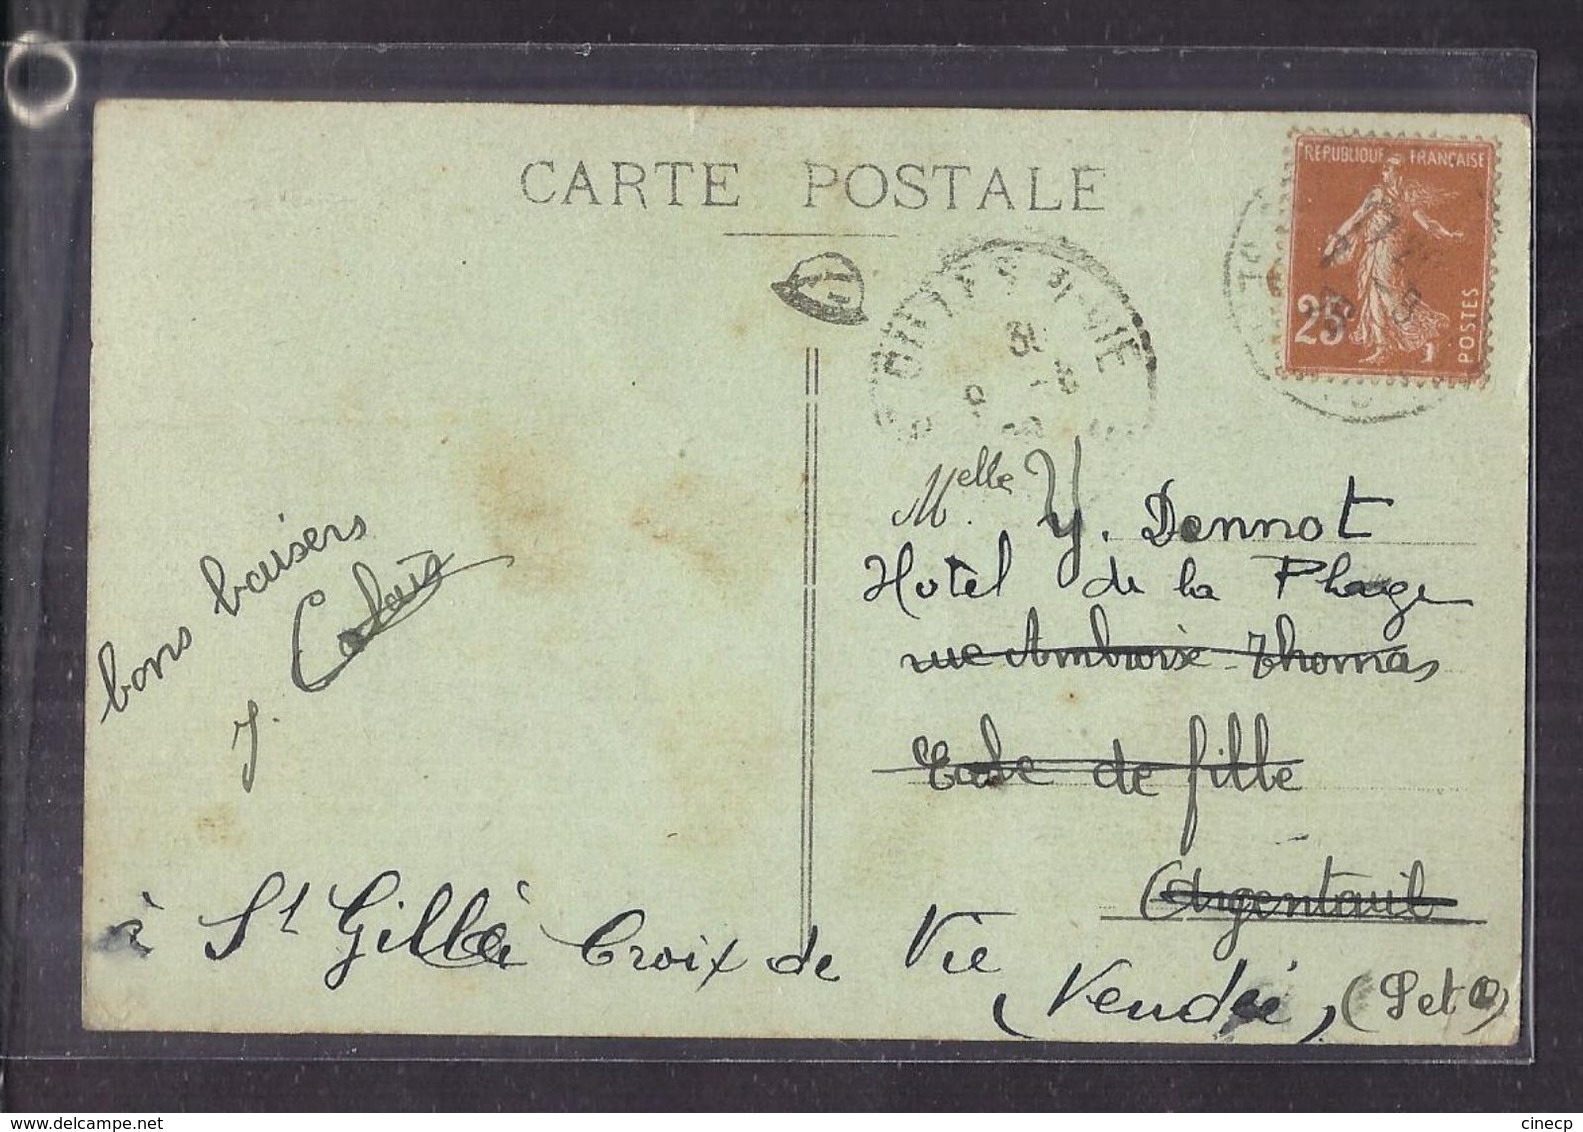 CARTE POSTALE
RÉPUBLIQUE FRANÇAISE
25
POSTES
Melle Y. Dennot
Hotel de la Plage
rue Ambroise Thomas
Ecole de fille
Argenteuil
bons baisers
y.
à St Gilles Croix de Vie
(Vendée) (S et O)
www.delcampe.net
cinecp